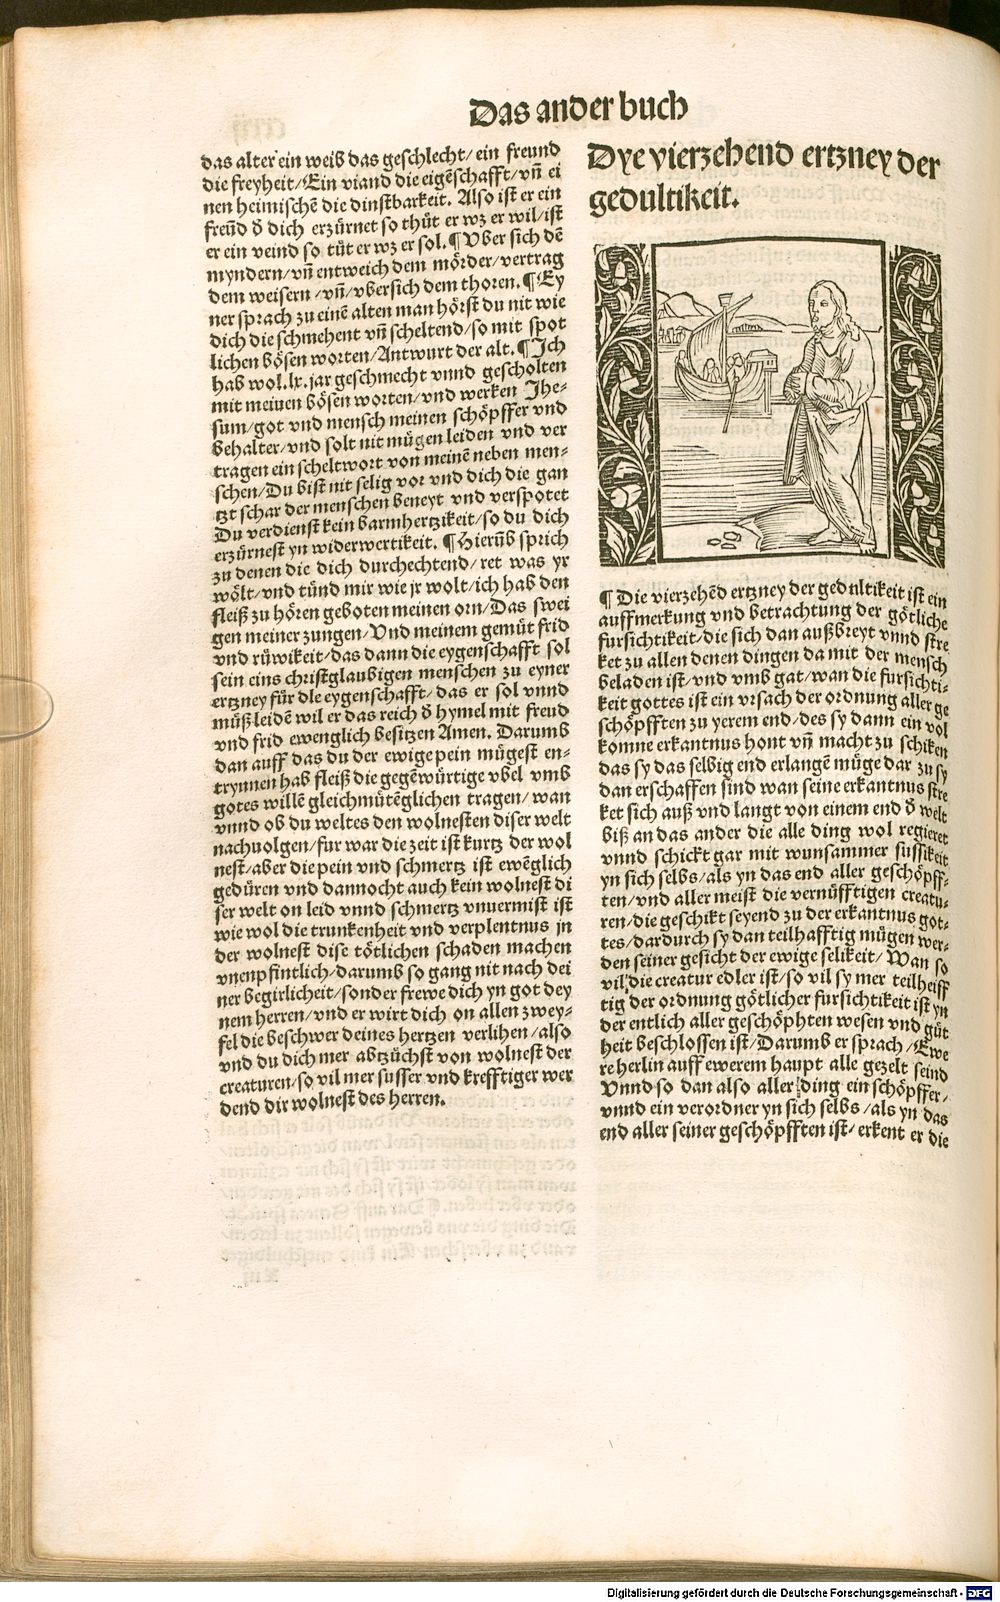 Das ander buch
das alter ein weib das geschlecht/ ein freund
die freyheit/ Ein viand die eigēschafft/ vñ ei
nen heimischē die dinstbarkeit. Also ist er ein
freūd ď dich erzürnet so thüt er wz er wil/ ist
er ein veind so tüt er wz er sol. ¶ Vber sich dē
myndern/ vñ entweich dem mörder/ vertrag
dem weisern/ vñ/ vbersich dem thoren. ¶ Ey
ner sprach zu einē alten man hörst du nit wie
dich die schmehent vñ scheltend/ so mit spot
lichen bösen worten/ Antwurt der alt. ¶ Ich
hab wol. lx. jar geschmecht vnnd gescholten
mit meinen bösen worten/ vnd werken Jhe-
sum/ got vnd mensch meinen schöpffer vnd
behalter/ vnd solt nit mügen leiden vnd ver
tragen ein scheltwort von meinē neben men-
schen/ Du bist nit selig vor vnd dich die gan
tzt schar der menschen beneyt vnd verspotet
Du verdienst kein barmhertzikeit/ so du dich
erzürnest yn widerwertikeit. ¶ Hierūb sprich
zu denen die dich durchechtend/ ret was yr
wölt/ vnd tünd mir wie jr wolt/ ich hab den
fleiß zu hören geboten meinen orn/ Das swei
gen meiner zungen/ Vnd meinem gemüt frid
vnd rüwikeit/ das dann die eygenschafft sol
sein eins christglaubigen menschen zu eyner
ertzney für dle eygenschafft/ das er sol vnnd
müß leidē wil er das reich ď hymel mit freud
vnd frid ewenglich besitzen Amen. Darumb
dan auff das du der ewige pein mügest en-
trynnen hab fleiß die gegēwürtige vbel vmb
gotes willē gleichmütēglichen tragen/ wan
vnnd ob du weltes den wolnesten diser welt
nachuolgen/ fur war die zeit ist kurtz der wol
nest/ aber die pein vnd schmertz ist ewēglich
gedüren vnd dannocht auch kein wolnest di
ser welt on leid vnnd schmertz vnuermist ist
wie wol die trunkenheit vnd verplentnus jn
der wolnest dise tötlichen schaden machen
vnenpfintlich/ darumb so gang nit nach dei
ner begirlicheit/ sonder frewe dich yn got dey
nem herren/ vnd er wirt dich on allen zwey-
fel die beschwer deines hertzen verlihen/ also
vnd du dich mer abtzüchst von wolnest der
creaturen/ so vil mer susser vnd krefftiger wer
dend dir wolnest des herren.
Dye vierzehend ertzney der
gedultikeit.
¶ Die vierzehēd ertzney der gedultikeit ist ein
auffmerkung vnd betrachtung der götliche
fursichtikeit/ die sich dan außbreyt vnnd stre
ket zu allen denen dingen da mit der mensch
beladen ist/ vnd vmb gat/ wan die fursichti-
keit gottes ist ein vrsach der ordnung aller ge
schöpfften zu yerem end/ des sy dann ein vol
komne erkantnus hont vñ macht zu schiken
das sy das selbig end erlangē müge dar zu sy
dan erschaffen sind wan seine erkantnus stre
ket sich auß vnd langt von einem end ď welt
biß an das ander die alle ding wol regieret
vnnd schickt gar mit wunsammer sussikeit
yn sich selbs/ als yn das end aller geschöpff-
ten/ vnd aller meist die vernüfftigen creatu-
ren/ die geschikt seyend zu der erkantnus got-
tes/ dardurch sy dan teilhafftig mügen wer-
den seiner gesicht der ewige selikeit/ Wan so
vil die creatur edler ist/ so vil sy mer teilheiff
tig der ordnung götlicher fursichtikeit ist yn
der entlich aller geschöphten wesen vnd güt
heit beschlossen ist/ Darumb er sprach/ Ewe
re herlin auff ewerem haupt alle gezelt seind
Vnnd so dan also aller ding ein schöpffer/
vnnd ein verordner yn sich selbs/ als yn das
end aller seiner geschöpfften ist/ erkent er die
Digitalisierung gefördert durch die Deutsche Forschungsgemeinschaft - DFG